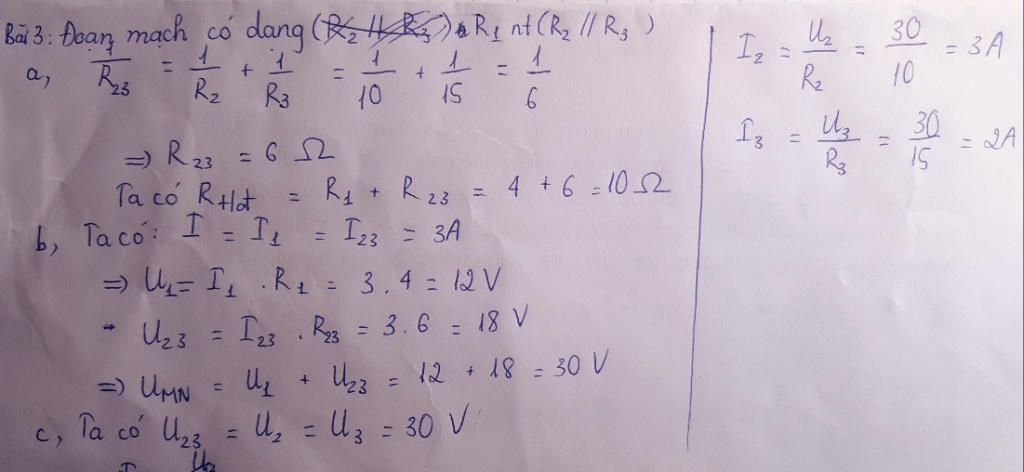 Bài 3: Đoạn mạch có dạng (R2 // R3) R1 nt (R2 // R3)
a, 1/R23 = 1/R2 + 1/R3 = 1/10 + 1/15 = 1/6
=> R23 = 6 Ω
Ta có Rtđ = R1 + R23 = 4 + 6 = 10 Ω
b, Ta có: I = I1 = I23 = 3A
=> U1 = I1 . R1 = 3 . 4 = 12 V
U23 = I23 . R23 = 3 . 6 = 18 V
=> UMN = U1 + U23 = 12 + 18 = 30 V
c, Ta có U23 = U2 = U3 = 30 V
I2 = U2/R2 = 30/10 = 3A
I3 = U3/R3 = 30/15 = 2A